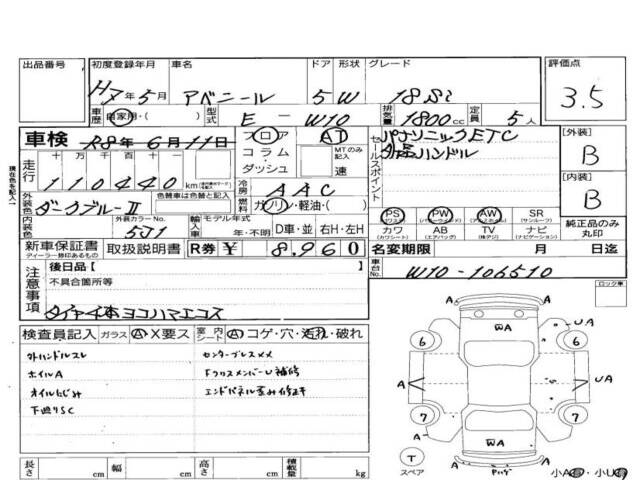 出品番号 初度登録年月 車名 ドア 形状 グレード 評価点
H7年5月 アベニール 5 W 18Si 3.5
車歴 自家用・( ) 型式 E-W10 排気量 1800cc 定員 5人
車検 R8年6月11日 フロア AT パナソニックETC [外装]
現在色を記入 走行 十万 万 千 百 十 一 コラム MTのみ記入 セールスポイント ハンドル B
110440 km ダッシュ 速
色替車は色替と記入 冷房 AAC [内装]
外装色 ダークブルーⅡ 燃料 ガソリン・軽油・( ) B
PS PW AW SR
内装色 外装カラーNo. 5J1 輸入車 モデル年式 年・不明 D車・並 右H・左H カワ AB TV ナビ 純正品のみ丸印
新車保証書 取扱説明書 R券 ¥ 8,960 名変期限 月 日迄
ディーラー捺印あるもの
注意事項 後日品【 】 車台No. W10-106510
不具合箇所等 ロック車
タイヤ4本ヨコハマエコス
検査員記入 ガラス A・X要ス 室内シート A・コゲ・穴・汚れ・破れ
外ハンドルスレ センタープレスメメ
ホイルA FクロスメンバーU補修
オイルにじみ エンドパネル歪み修正キ
下廻りSC
WA UA
A 6 6 A
A A UA
7 7
A WA A
T スペア A A
長さ cm 幅 cm 高さ cm 積載量 kg 小A 小U